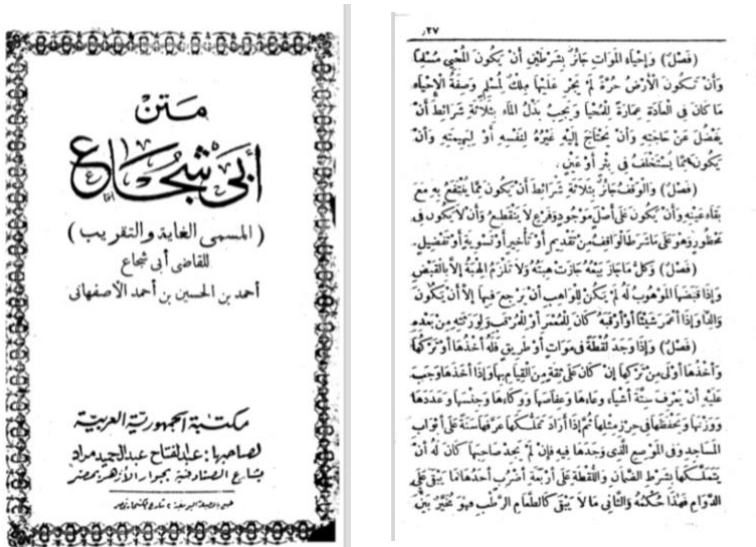 متن
أبى شجاع
( المسمى الغاية والتقريب )
للقاضى أبى شجاع
أحمد بن الحسين بن أحمد الأصفهانى
مكتبة الجمهورية العربية
لصاحبها : عبد الفتاح عبد الحميد مراد
بشارع الصنادقية بجوار الأزهر بمصر
٢٧
(فَصْلٌ) وَإِحْيَاءُ المَوَاتِ جَائِزٌ بِشَرْطَيْنِ أَنْ يَكُونَ المُحْيِي مُسْلِمًا
وَأَنْ تَكُونَ الْأَرْضُ حُرَّةً لَمْ يَجْرِ عَلَيْهَا مِلْكٌ لِمُسْلِمٍ وَصِفَةُ الْإِحْيَاءِ
مَا كَانَ فِى الْعَادَةِ عِمَارَةً لِلْمُحْيَا وَيَجِبُ بَذْلُ المَاءِ بِثَلَاثَةِ شَرَائِطَ أَنْ
يَفْضُلَ عَنْ حَاجَتِهِ وَأَنْ يَحْتَاجَ إِلَيْهِ غَيْرُهُ لِنَفْسِهِ أَوْ لِبَهِيمَتِهِ وَأَنْ
يَكُونَ مِمَّا يُسْتَخْلَفُ فِى بِئْرٍ أَوْ عَيْنٍ .
(فَصْلٌ) وَالْوَقْفُ جَائِزٌ بِثَلَاثَةِ شَرَائِطَ أَنْ يَكُونَ مِمَّا يُنْتَفَعُ بِهِ مَعَ
بَقَاءِ عَيْنِهِ وَأَنْ يَكُونَ عَلَى أَصْلٍ مَوْجُودٍ وَفَرْعٍ لَا يَنْقَطِعُ وَأَنْ لَا يَكُونَ فِى
مَحْظُورٍ وَهُوَ عَلَى مَا شَرَطَ الْوَاقِفُ مِنْ تَقْدِيمٍ أَوْ تَأْخِيرٍ أَوْ تَسْوِيَةٍ أَوْ تَفْضِيلٍ .
(فَصْلٌ) وَكُلُّ مَا جَازَ بَيْعُهُ جَازَتْ هِبَتُهُ وَلَا تَلْزَمُ الْهِبَةُ إِلَّا بِالْقَبْضِ
وَإِذَا قَبَضَهَا المَوْهُوبُ لَهُ لَمْ يَكُنْ لِلْوَاهِبِ أَنْ يَرْجِعَ فِيهَا إِلَّا أَنْ يَكُونَ
وَالِدًا وَإِذَا أَعْمَرَ شَيْئًا أَوْ أَرْقَبَهُ كَانَ لِلْمُعْمَرِ أَوْ لِلْمُرْقَبِ وَلِوَرَثَتِهِ مِنْ بَعْدِهِ
(فَصْلٌ) وَإِذَا وَجَدَ لُقْطَةً فِى مَوَاتٍ أَوْ طَرِيقٍ فَلَهُ أَخْذُهَا أَوْ تَرْكُهَا
وَأَخْذُهَا أَوْلَى مِنْ تَرْكِهَا إِنْ كَانَ عَلَى ثِقَةٍ مِنَ الْقِيَامِ بِهَا وَإِذَا أَخَذَهَا وَجَبَ
عَلَيْهِ أَنْ يَعْرِفَ سِتَّةَ أَشْيَاءَ وِعَاءَهَا وَعِفَاصَهَا وَوِكَاءَهَا وَجِنْسَهَا وَعَدَدَهَا
وَوَزْنَهَا وَيَحْفَظَهَا فِى حِرْزِ مِثْلِهَا ثُمَّ إِذَا أَرَادَ تَمَلُّكَهَا عَرَّفَهَا سَنَةً عَلَى أَبْوَابِ
المَسَاجِدِ وَفِى المَوْضِعِ الَّذِى وَجَدَهَا فِيهِ فَإِنْ لَمْ يَجِدْ صَاحِبَهَا كَانَ لَهُ أَنْ
يَتَمَلَّكَهَا بِشَرْطِ الضَّمَانِ وَاللُّقَطَةُ عَلَى أَرْبَعَةِ أَضْرُبٍ أَحَدُهَا مَا يَبْقَى عَلَى
الدَّوَامِ فَهٰذَا حُكْمُهُ وَالثَّانِى مَا لَا يَبْقَى كَالطَّعَامِ الرَّطْبِ فَهُوَ مُخَيَّرٌ بَيْنَ